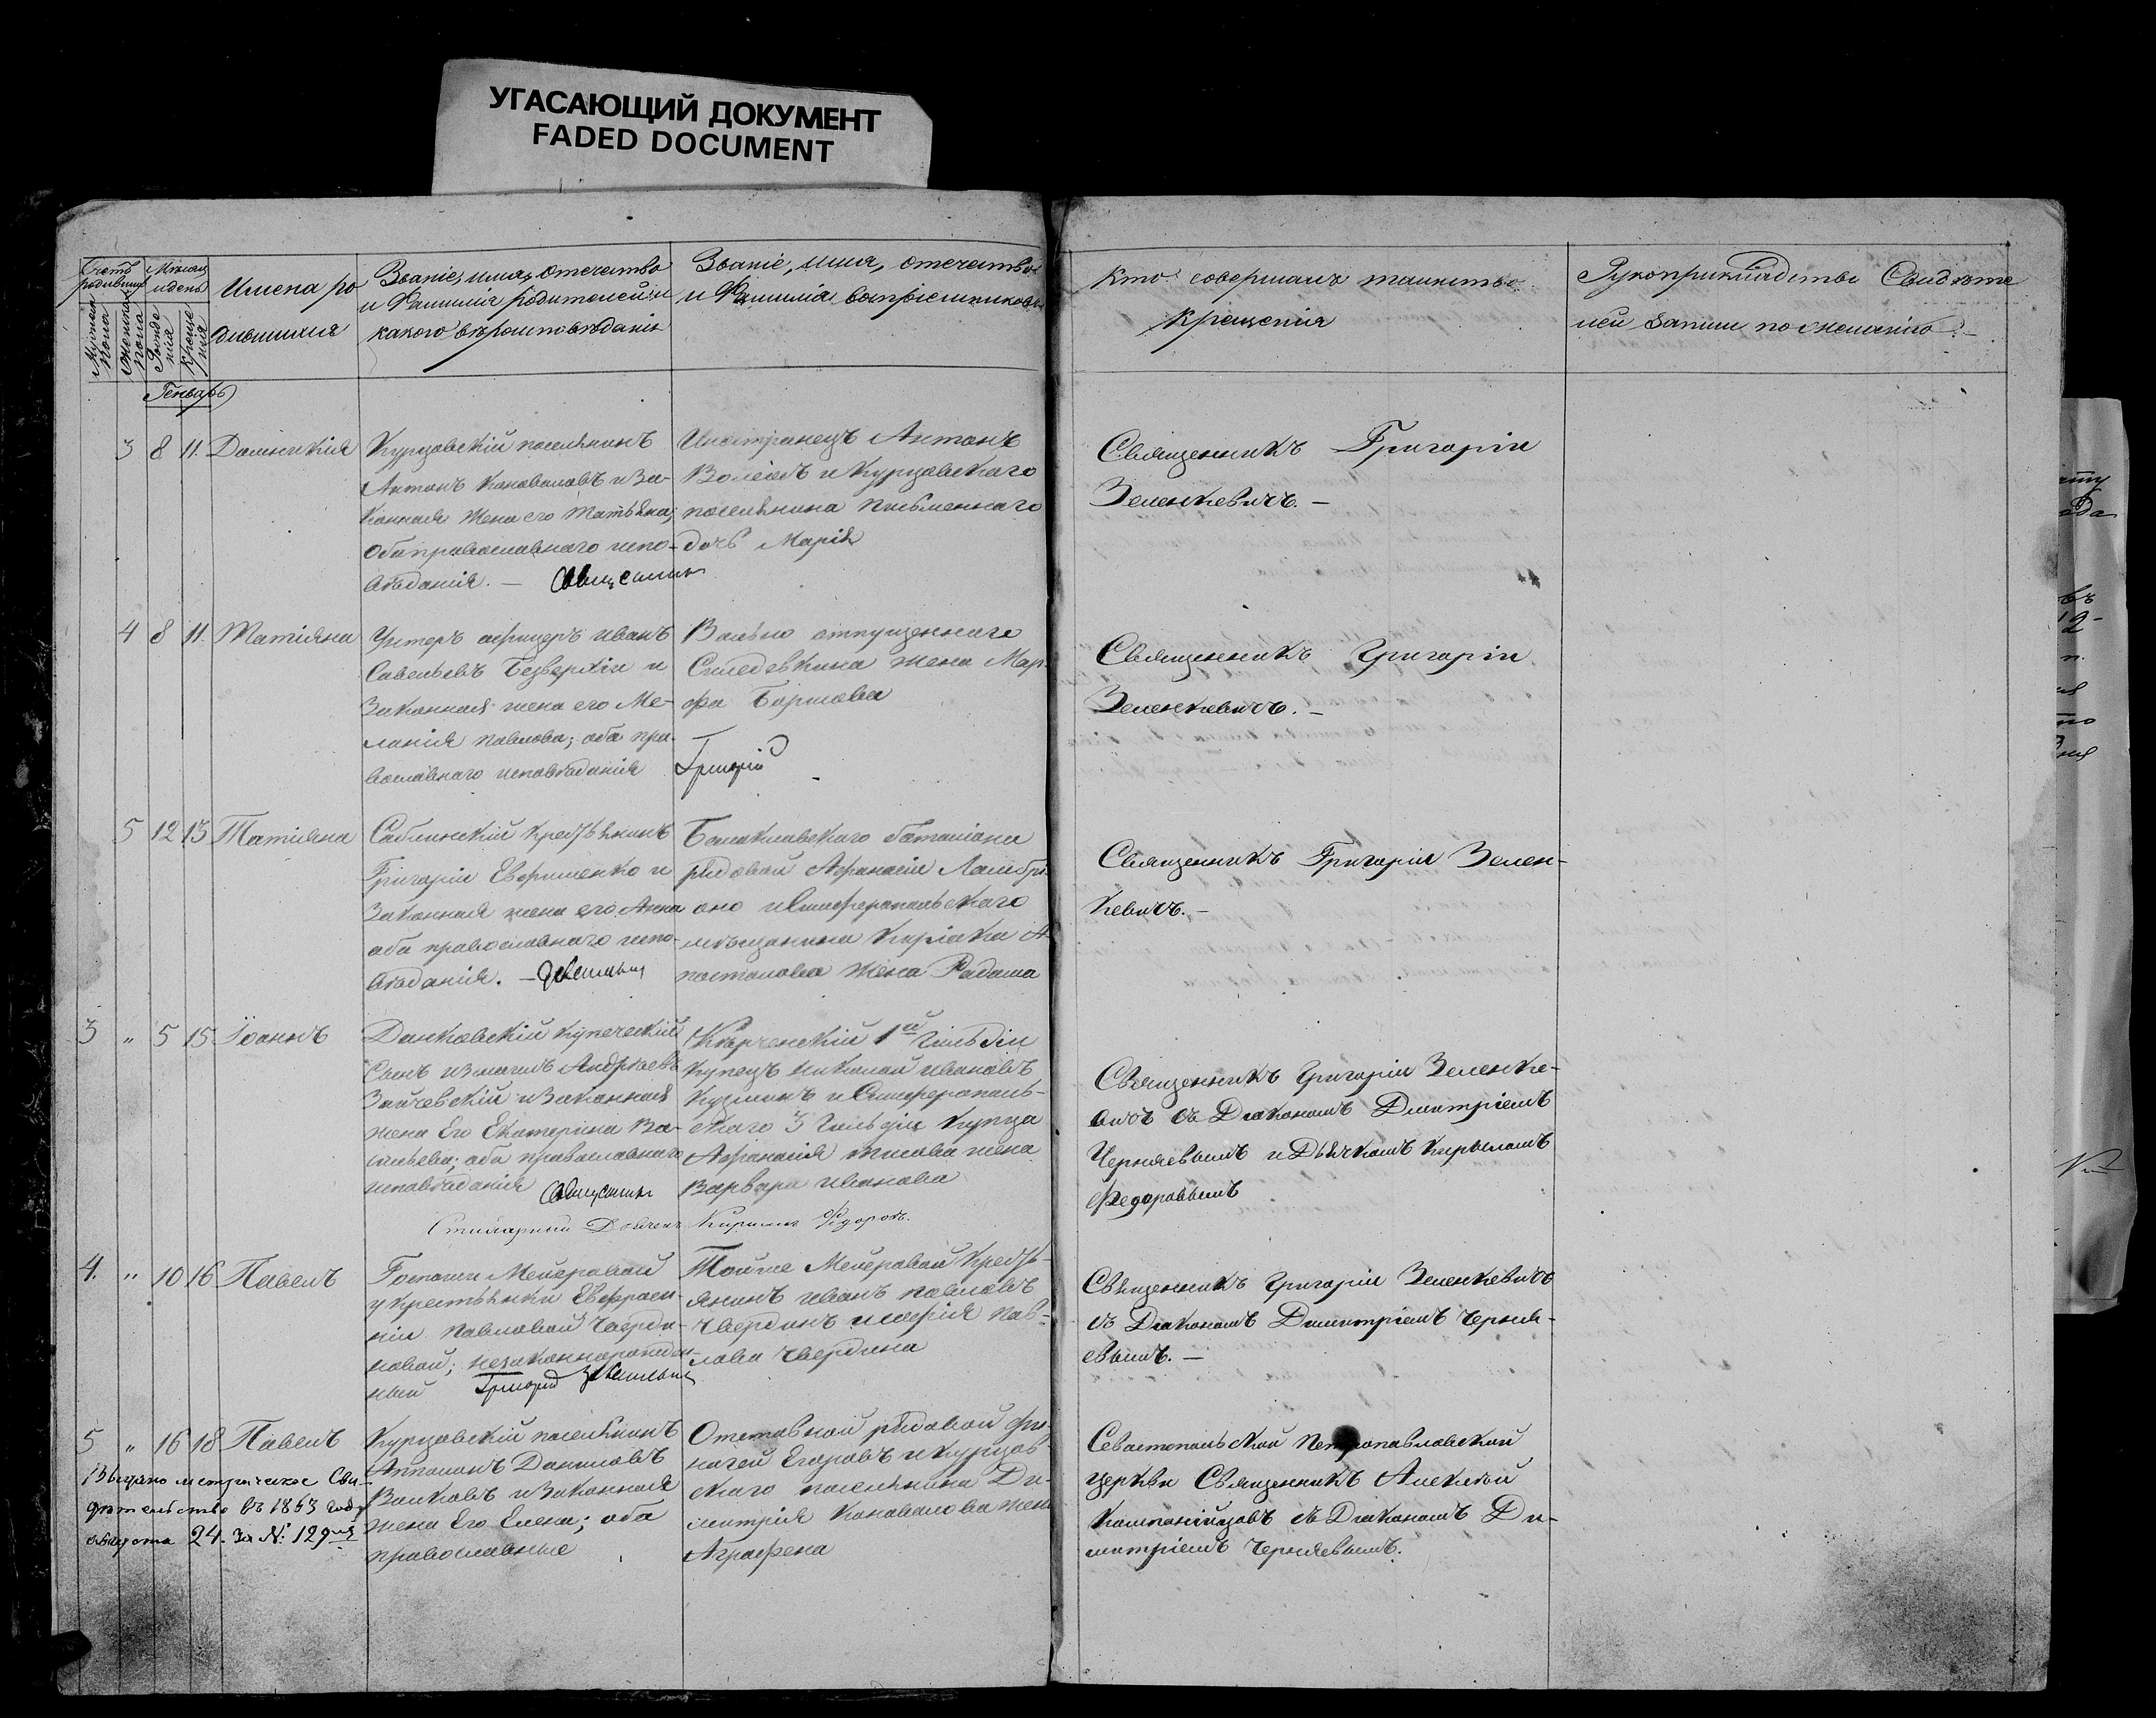 УГАСАЮЩИЙ ДОКУМЕНТ
FADED DOCUMENT
Счетъ родившихся
Мѣсяц и день
Мужеска пола
Женска пола
Рожденія
Крещенія
Имена ро
дившихся
Званіе, имя, отечество
и Фамилія родителей и
какого вѣроисповѣданія
Званіе, имя, отечество
и Фамилія воспріемниковъ
Кто совершалъ таинство
Крещенія
Рукоприкладство Свидѣте
лей записи по желанію. —
Генварь
3 8 11. Домникія
Курцовскій поселянинъ
Антонъ Коноваловъ и За-
конная жена его Татьяна;
оба православнаго испо-
вѣданія. —
Иностранецъ Антонъ
и Курцовскаго
поселянина Письменнаго
дочь Марія
Священникъ Григорій
Зеленкевичъ. —
4 8 11. Татіяна
Унтеръ офицеръ Иванъ
Савельевъ Безверхій и
Законная жена его Ме-
ланія Павлова; оба пра-
вославнаго исповѣданія
Вольно отпущеннаго
жена Мар-
фа
Григорій
Священникъ Григорій
Зеленкевичъ. —
5 12 13 Татіяна
Саблинскій крестьянинъ
Григорій и
Законная жена его Анна
оба православнаго испо-
вѣданія. —
Балаклавскаго баталіона
рядовой Афанасій Ламбрі-
оно и Симферопольскаго
мѣщанина Киріака А-
постолова жена
Священникъ Григорій Зелен-
кевичъ. —
3 " 5 15 Іоаннъ
Данковскій купеческій
Сынъ Измаилъ Андреевъ
Заичевскій и Законная
жена Его Екатерина Ва-
сильева; оба православнаго
исповѣданія
Керченскій 1ой Гильдіи
Купецъ Николай Ивановъ
Кузминъ и Симферополь-
скаго 3 Гильдіи Купца
Афанасія жена
Варвара Иванова
Дьячекъ Кирилъ Ѳедоровъ.
Священникъ Григорій Зеленке-
вичъ съ Діакономъ Димитріемъ
Черняевымъ и Дьячкомъ Кириломъ
Федоровымъ
4. " 10 16 Павелъ
Госпожи Мейеровой
у крестьянки Евфроси-
ніи Павловой
незаконнорожден-
ный Григорій
Тойже Мейеровой крестъ-
янинъ Иванъ Павловъ
Пав-
лова
Священникъ Григорій Зеленкевичъ
съ Діакономъ Димитріемъ Черня-
евымъ. —
5 " 16 18 Павелъ
Курцовскій поселянинъ
Даниловъ
Волковъ и Законная
жена Его Елена; оба
православные
Отставной рядовой
Егоровъ и Курцов-
скаго поселянина Ди-
митрія Коновалова жена
Аграфена
Севастопольской Петропавловской
церкви Священникъ Алексѣй
съ Діакономъ Ди-
митріемъ Черняевымъ.
Выдано метрическое Сви-
дѣтельство въ 1853 году
августа 24. За №: 129мъ